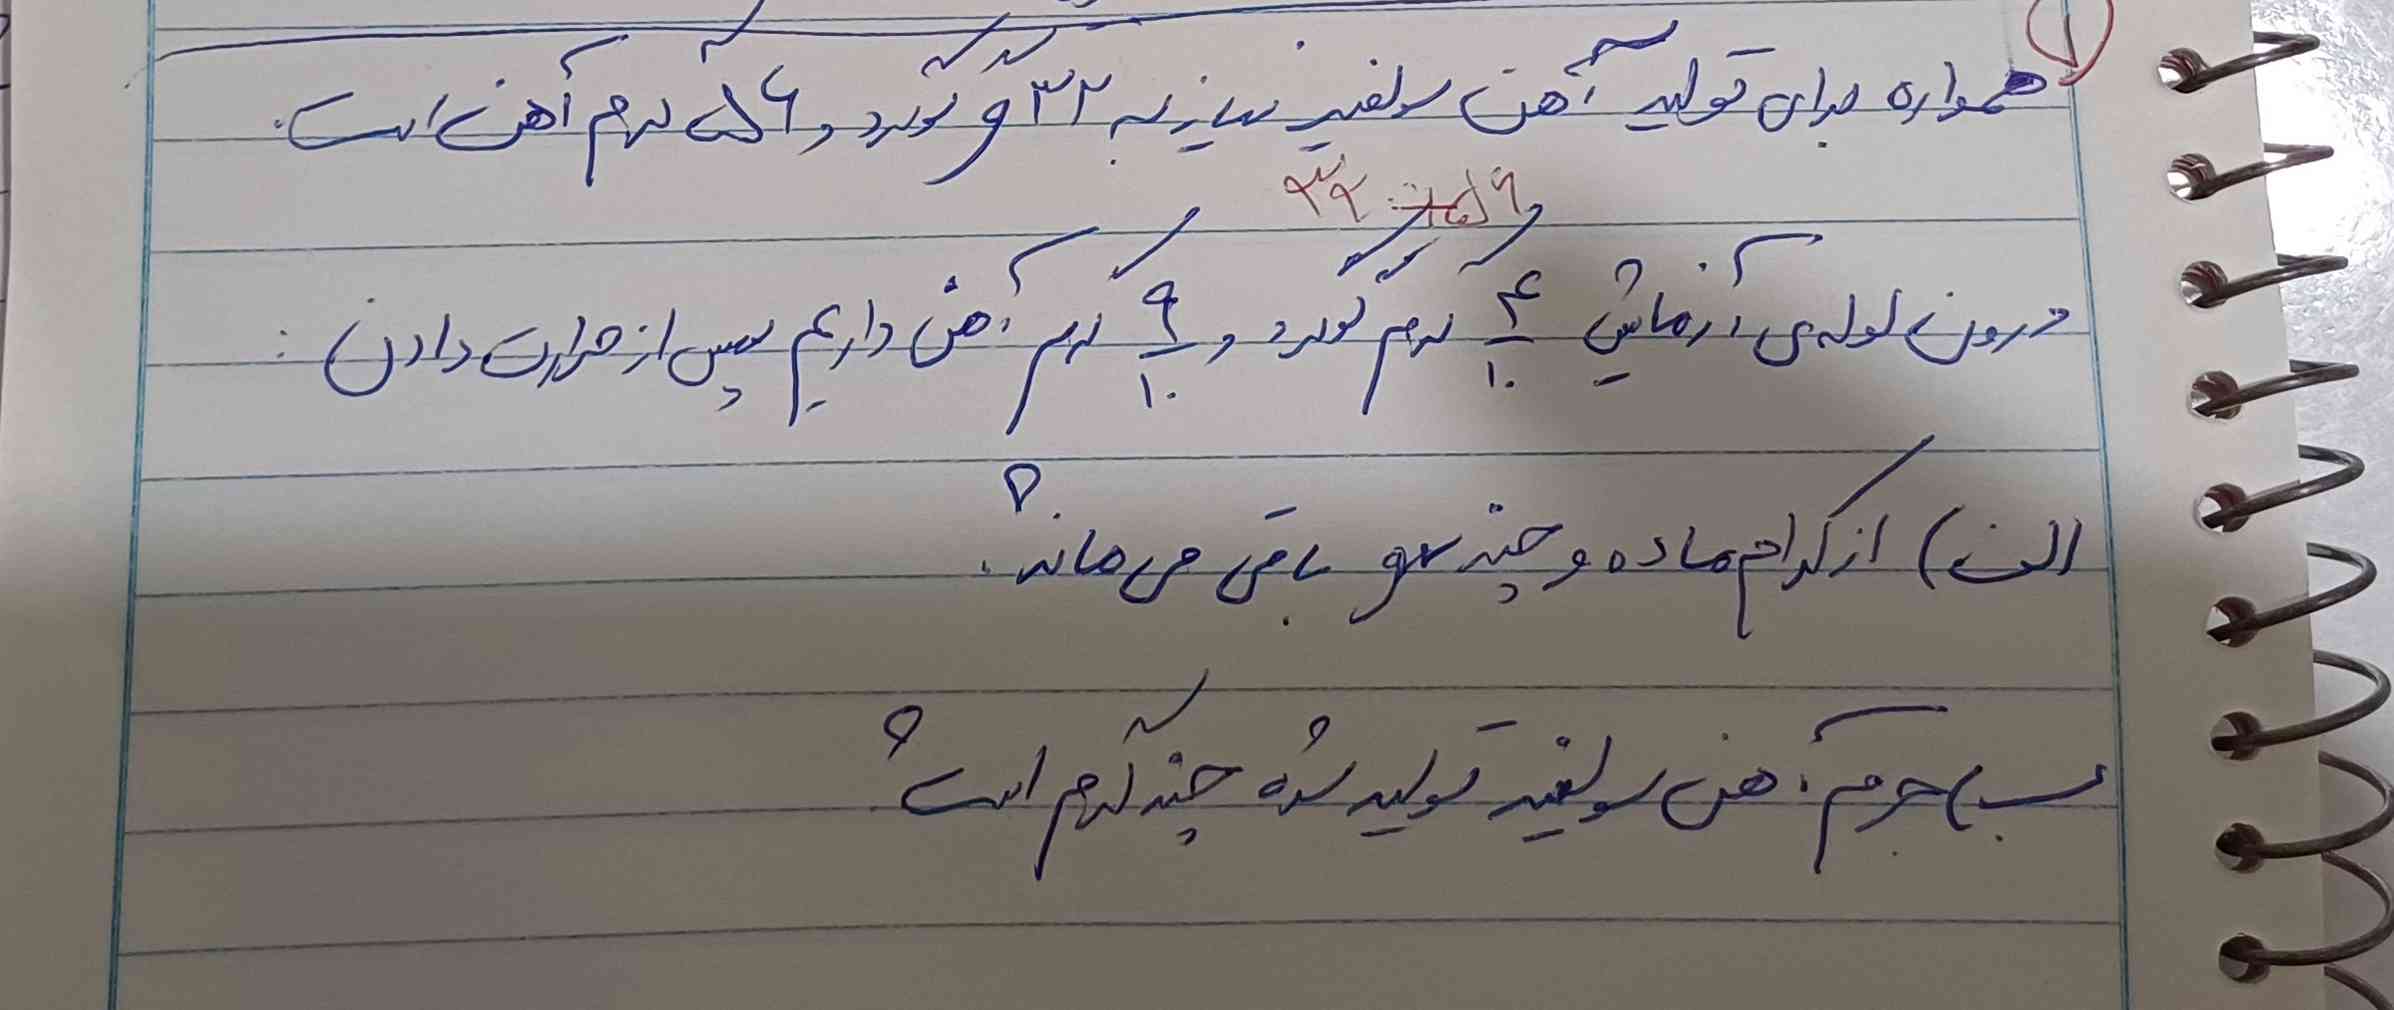 ۱
همواره برای تولید آهن سولفید نیاز به ۳۲ گوگرد و ۵۶ گرم آهن است.
۵۶ ۳۲
درون لوله‌ی آزمایش ۴/۱۰ گرم گوگرد و ۹/۱۰ گرم آهن داریم سپس از حرارت دادن :
الف) از کدام ماده و چند باقی می‌ماند؟
ب) جرم آهن سولفید تولید شده چند گرم است؟